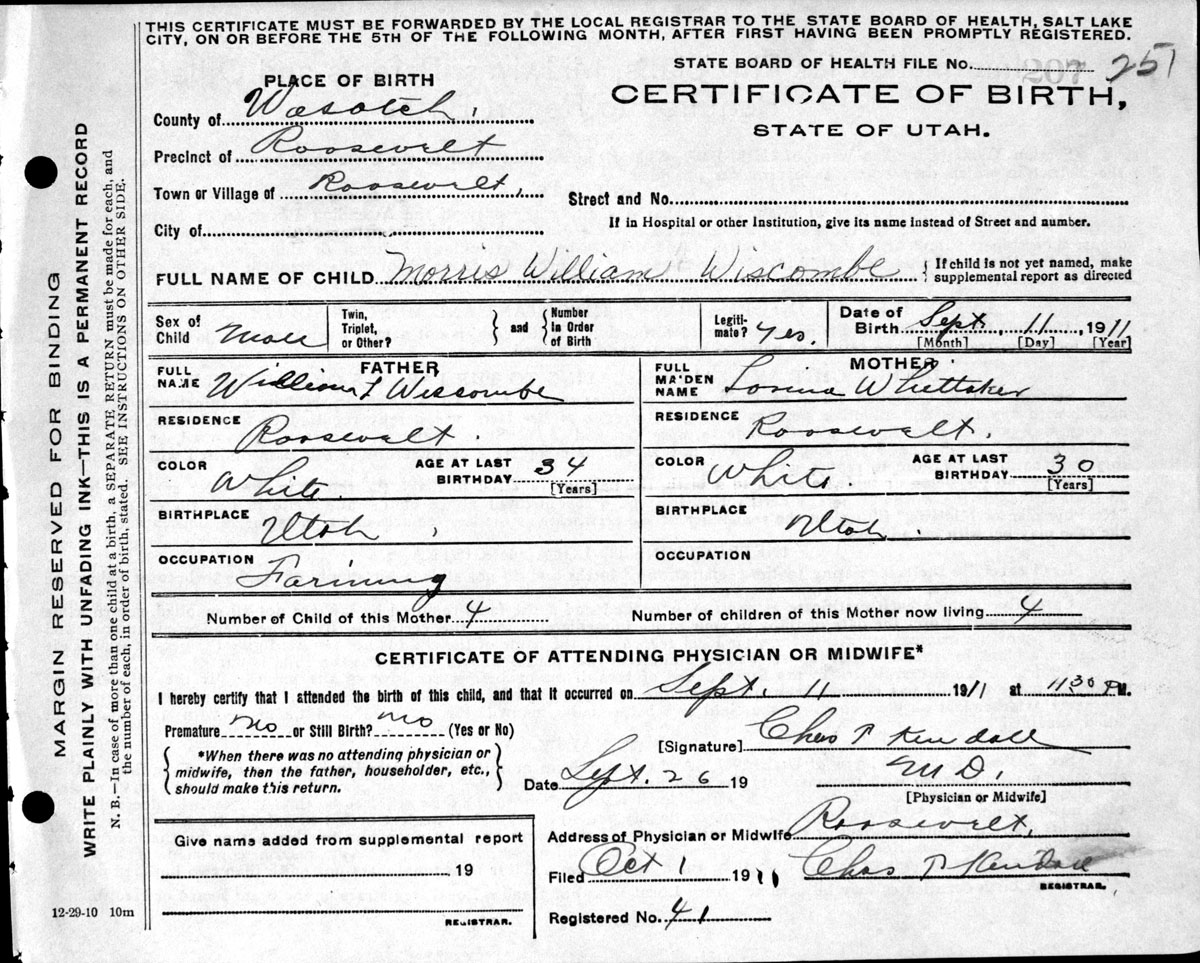 THIS CERTIFICATE MUST BE FORWARDED BY THE LOCAL REGISTRAR TO THE STATE BOARD OF HEALTH, SALT LAKE
CITY, ON OR BEFORE THE 5TH OF THE FOLLOWING MONTH, AFTER FIRST HAVING BEEN PROMPTLY REGISTERED.
STATE BOARD OF HEALTH FILE No. 251
PLACE OF BIRTH
CERTIFICATE OF BIRTH,
STATE OF UTAH.
County of Wasatch,
Precinct of Roosevelt
Town or Village of Roosevelt,
Street and No.
City of
If in Hospital or other Institution, give its name instead of Street and number.
FULL NAME OF CHILD Morris William Wiscombe { If child is not yet named, make
supplemental report as directed
Sex of Child Male
Twin, Triplet, or Other? } and { Number in Order of Birth
Legitimate? Yes.
Date of Birth Sept. 11, 1911
[Month] [Day] [Year]
FATHER
FULL NAME William L Wiscombe
MOTHER
FULL MAIDEN NAME Lovina Whittaker
RESIDENCE Roosevelt.
RESIDENCE Roosevelt.
COLOR White. AGE AT LAST BIRTHDAY 34 [Years]
COLOR White. AGE AT LAST BIRTHDAY 30 [Years]
BIRTHPLACE Utah,
BIRTHPLACE Utah.
OCCUPATION Farming
OCCUPATION
Number of Child of this Mother 4 Number of children of this Mother now living 4
CERTIFICATE OF ATTENDING PHYSICIAN OR MIDWIFE*
I hereby certify that I attended the birth of this child, and that it occurred on Sept. 11 1911 at 1130 P.M.
Premature No or Still Birth? No (Yes or No)
*When there was no attending physician or
midwife, then the father, householder, etc.,
should make this return.
[Signature] Chas T Kendall
M D.
[Physician or Midwife]
Date Sept. 26 19
Address of Physician or Midwife Roosevelt.
Filed Oct 1 1911 Chas T Kendall
REGISTRAR.
Registered No. 41
Give name added from supplemental report
19
REGISTRAR.
12-29-10 10m
MARGIN RESERVED FOR BINDING
WRITE PLAINLY WITH UNFADING INK—THIS IS A PERMANENT RECORD
N. B.—In case of more than one child at a birth, a SEPARATE RETURN must be made for each, and
the number of each, in order of birth, stated. SEE INSTRUCTIONS ON OTHER SIDE.